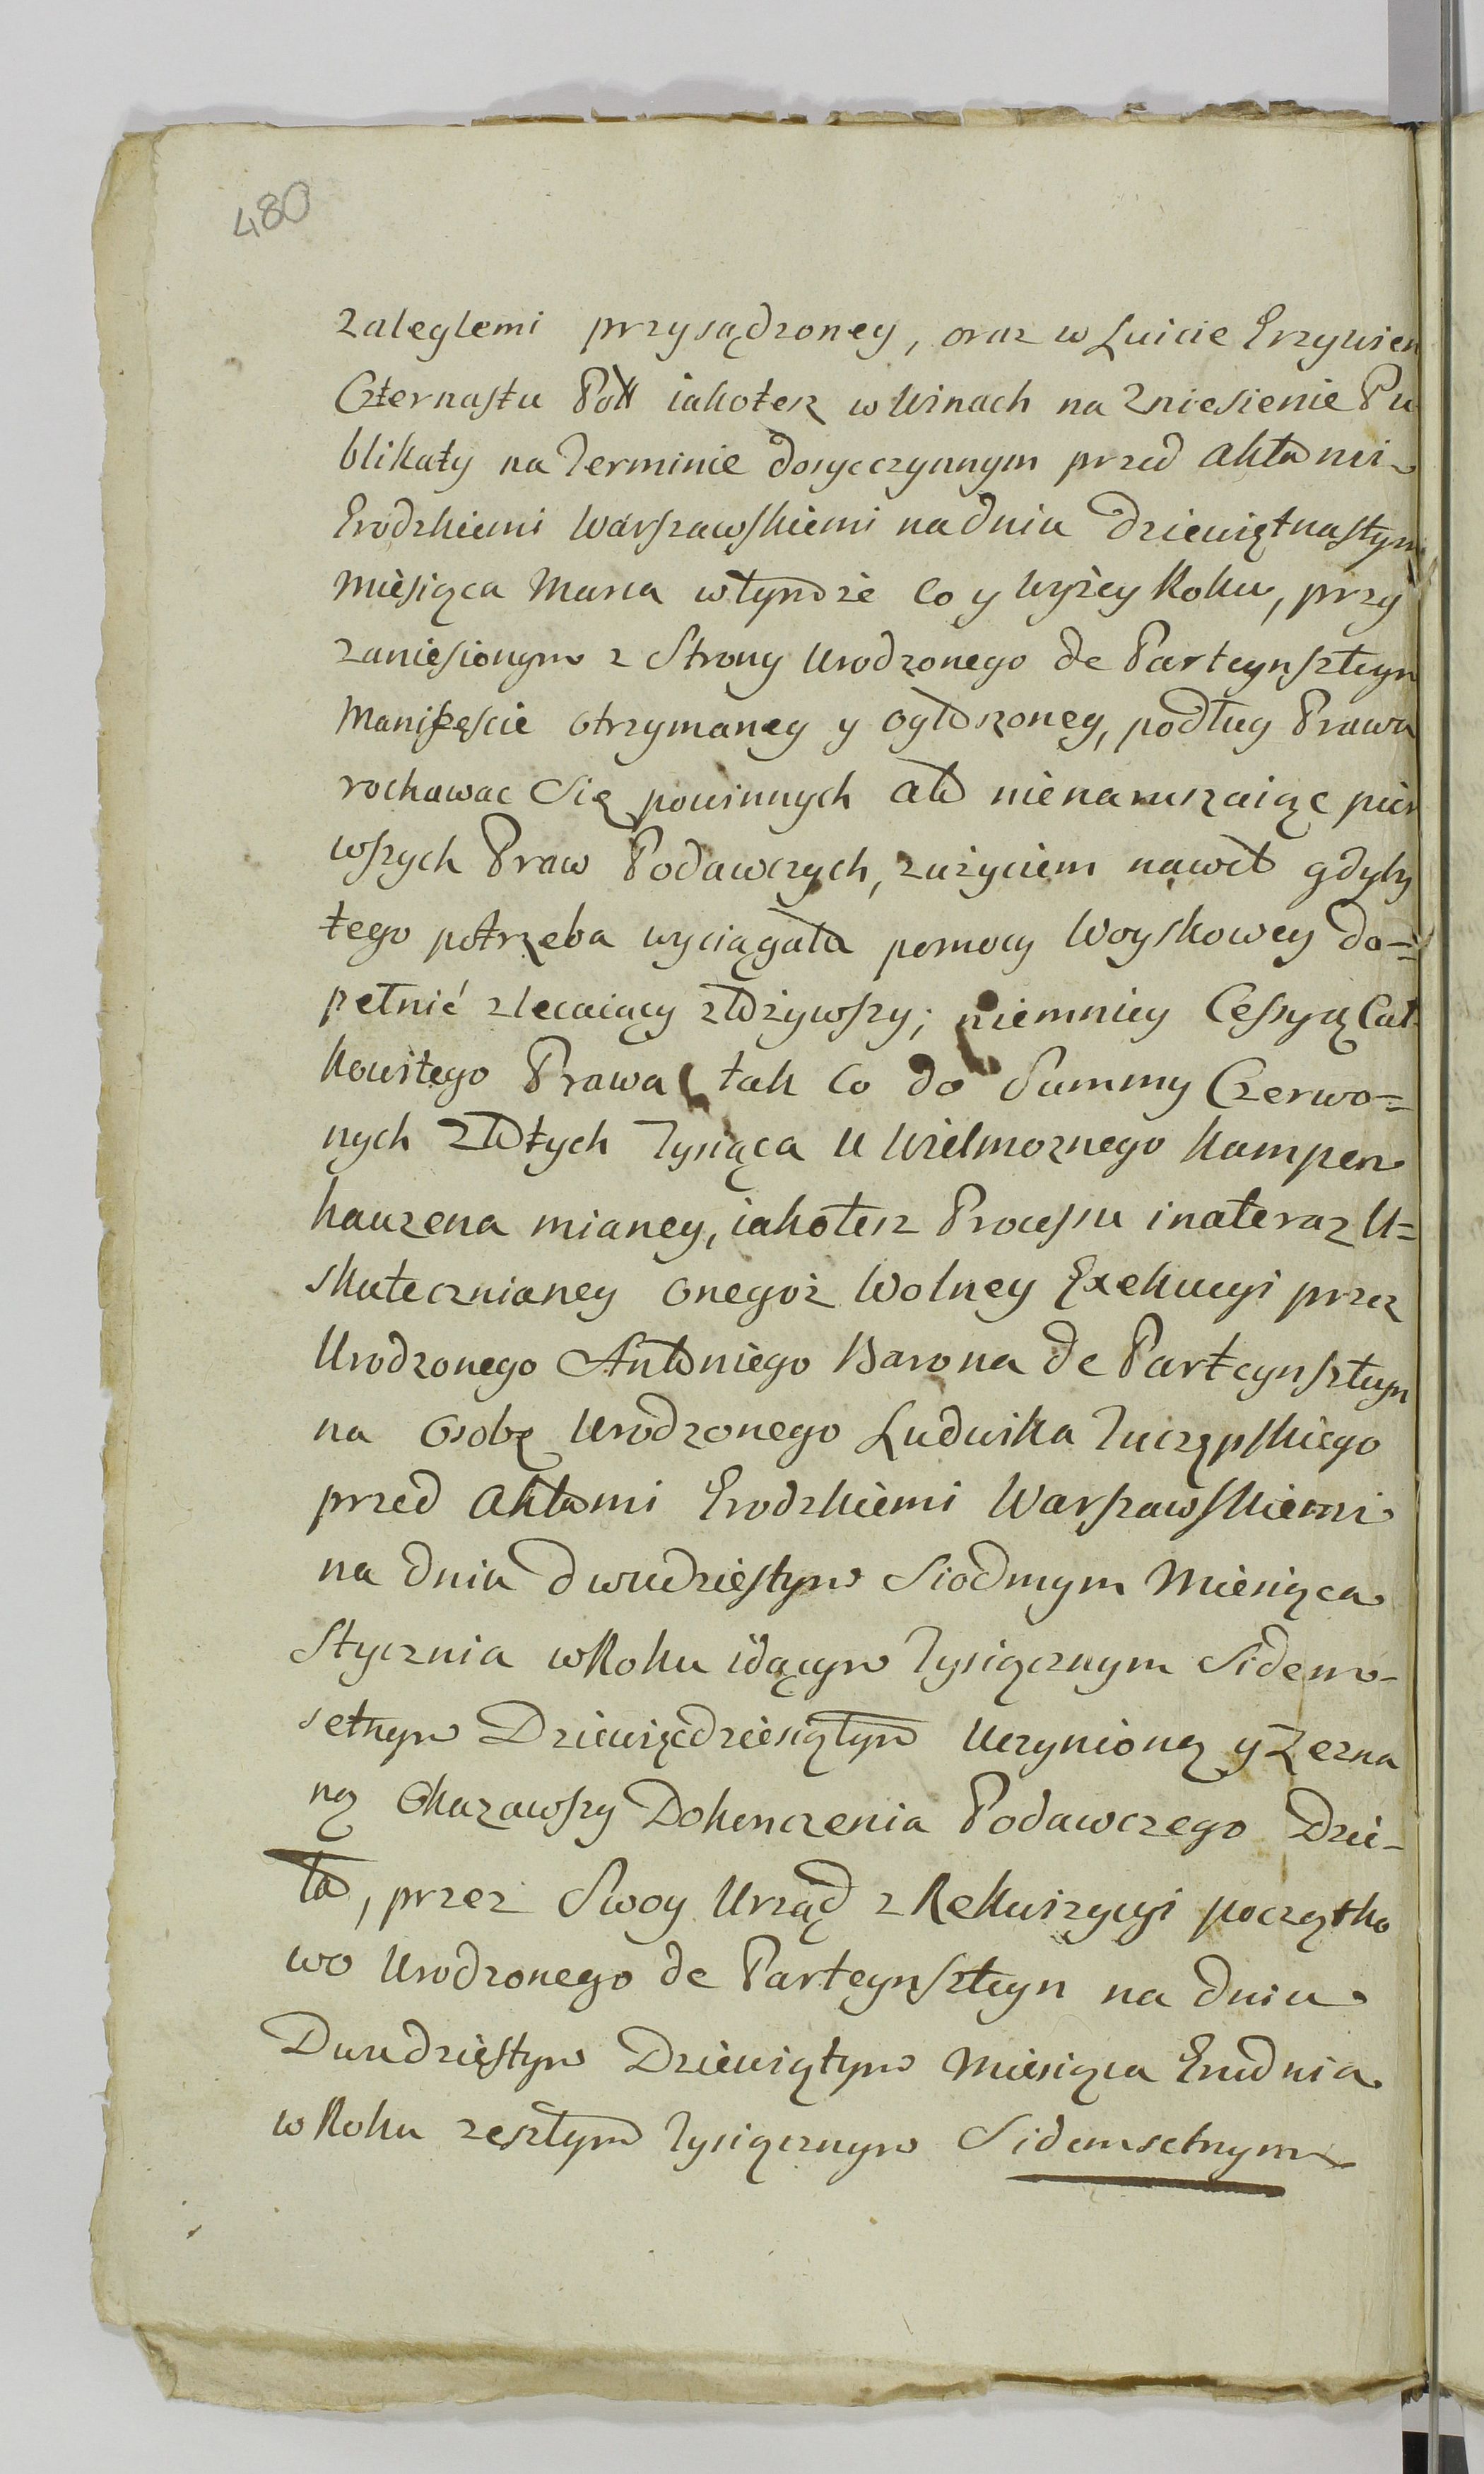 480
zaległemi przysądzoney, oraz w Luicie Grzywien
Czternastu Pol iakotez w Winach na Zniesienie Pu
blikaty na Terminie dosyczynnym przed Aktami
Grodzkiemi Warszawskiemi na dniu dziewiętnastym
Miesiąca Marca w tymże co y wyżey Roku, przy
zaniesionym z Strony Urodzonego de Parteynszteyn
Manifeście otrzymaney y ogłoszoney, podług Prawa
rachować Się powinnych ato nienaruszaiąc pier
wszych Praw Podawczych, zużyciem nawet gdyby
tego potrzeba wyciągała pomocy Woyskowey do=
pełnić zlecaiący złożywszy; niemniey Cessyą Cał
kowitego Prawa tak co do Summy Czerwo=
nych Złotych Tysiąca u Wielmoznego Kampen
hauzena mianey, iakotez Processu inateraz U=
skutecznianey onegoż Wolney Exekucyi przez
Urodzonego Antoniego Barona de Parteynszteyn
na Osobę Urodzonego Ludwika Tuczępskiego
przed Aktami Grodzkiemi Warszawskiemi
na dniu dwudziestym Siodmym Miesiąca
Stycznia w Roku idącym Tysiącznym Sidem-
setnym Dziewięćdziesiątym Uczynioną y Zezna
ną Okazawszy Dokończenia Podawczego Dzie-
ła, przez Swoy Urząd z Rekwizycyi początko
wo Urodzonego de Parteynszteyn na dniu
Dwudziestym Dziewiątym Miesiąca Grudnia
w Roku zeszłym Tysiącznym Sidemsetnym